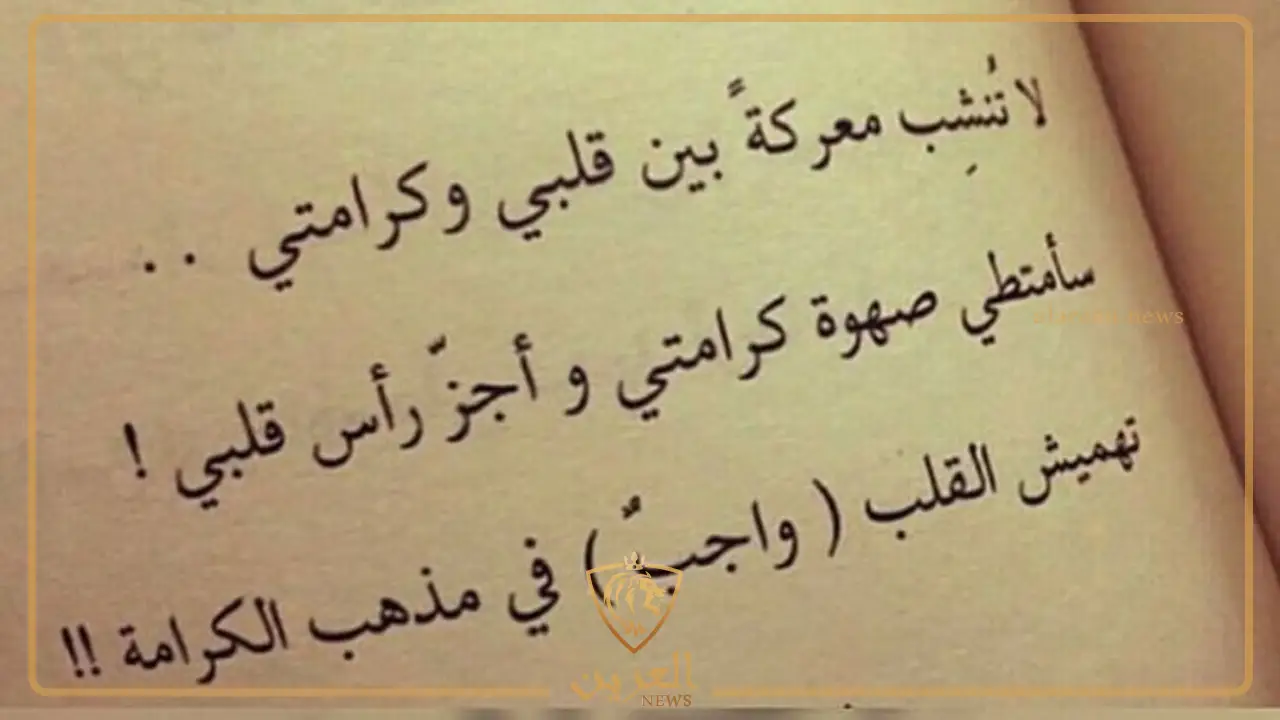 لا تُنشِب معركةً بين قلبي وكرامتي ..
سأمتطي صهوة كرامتي و أجزّ رأس قلبي !
تهميش القلب ( واجبٌ ) في مذهب الكرامة !!
العرين
NEWS